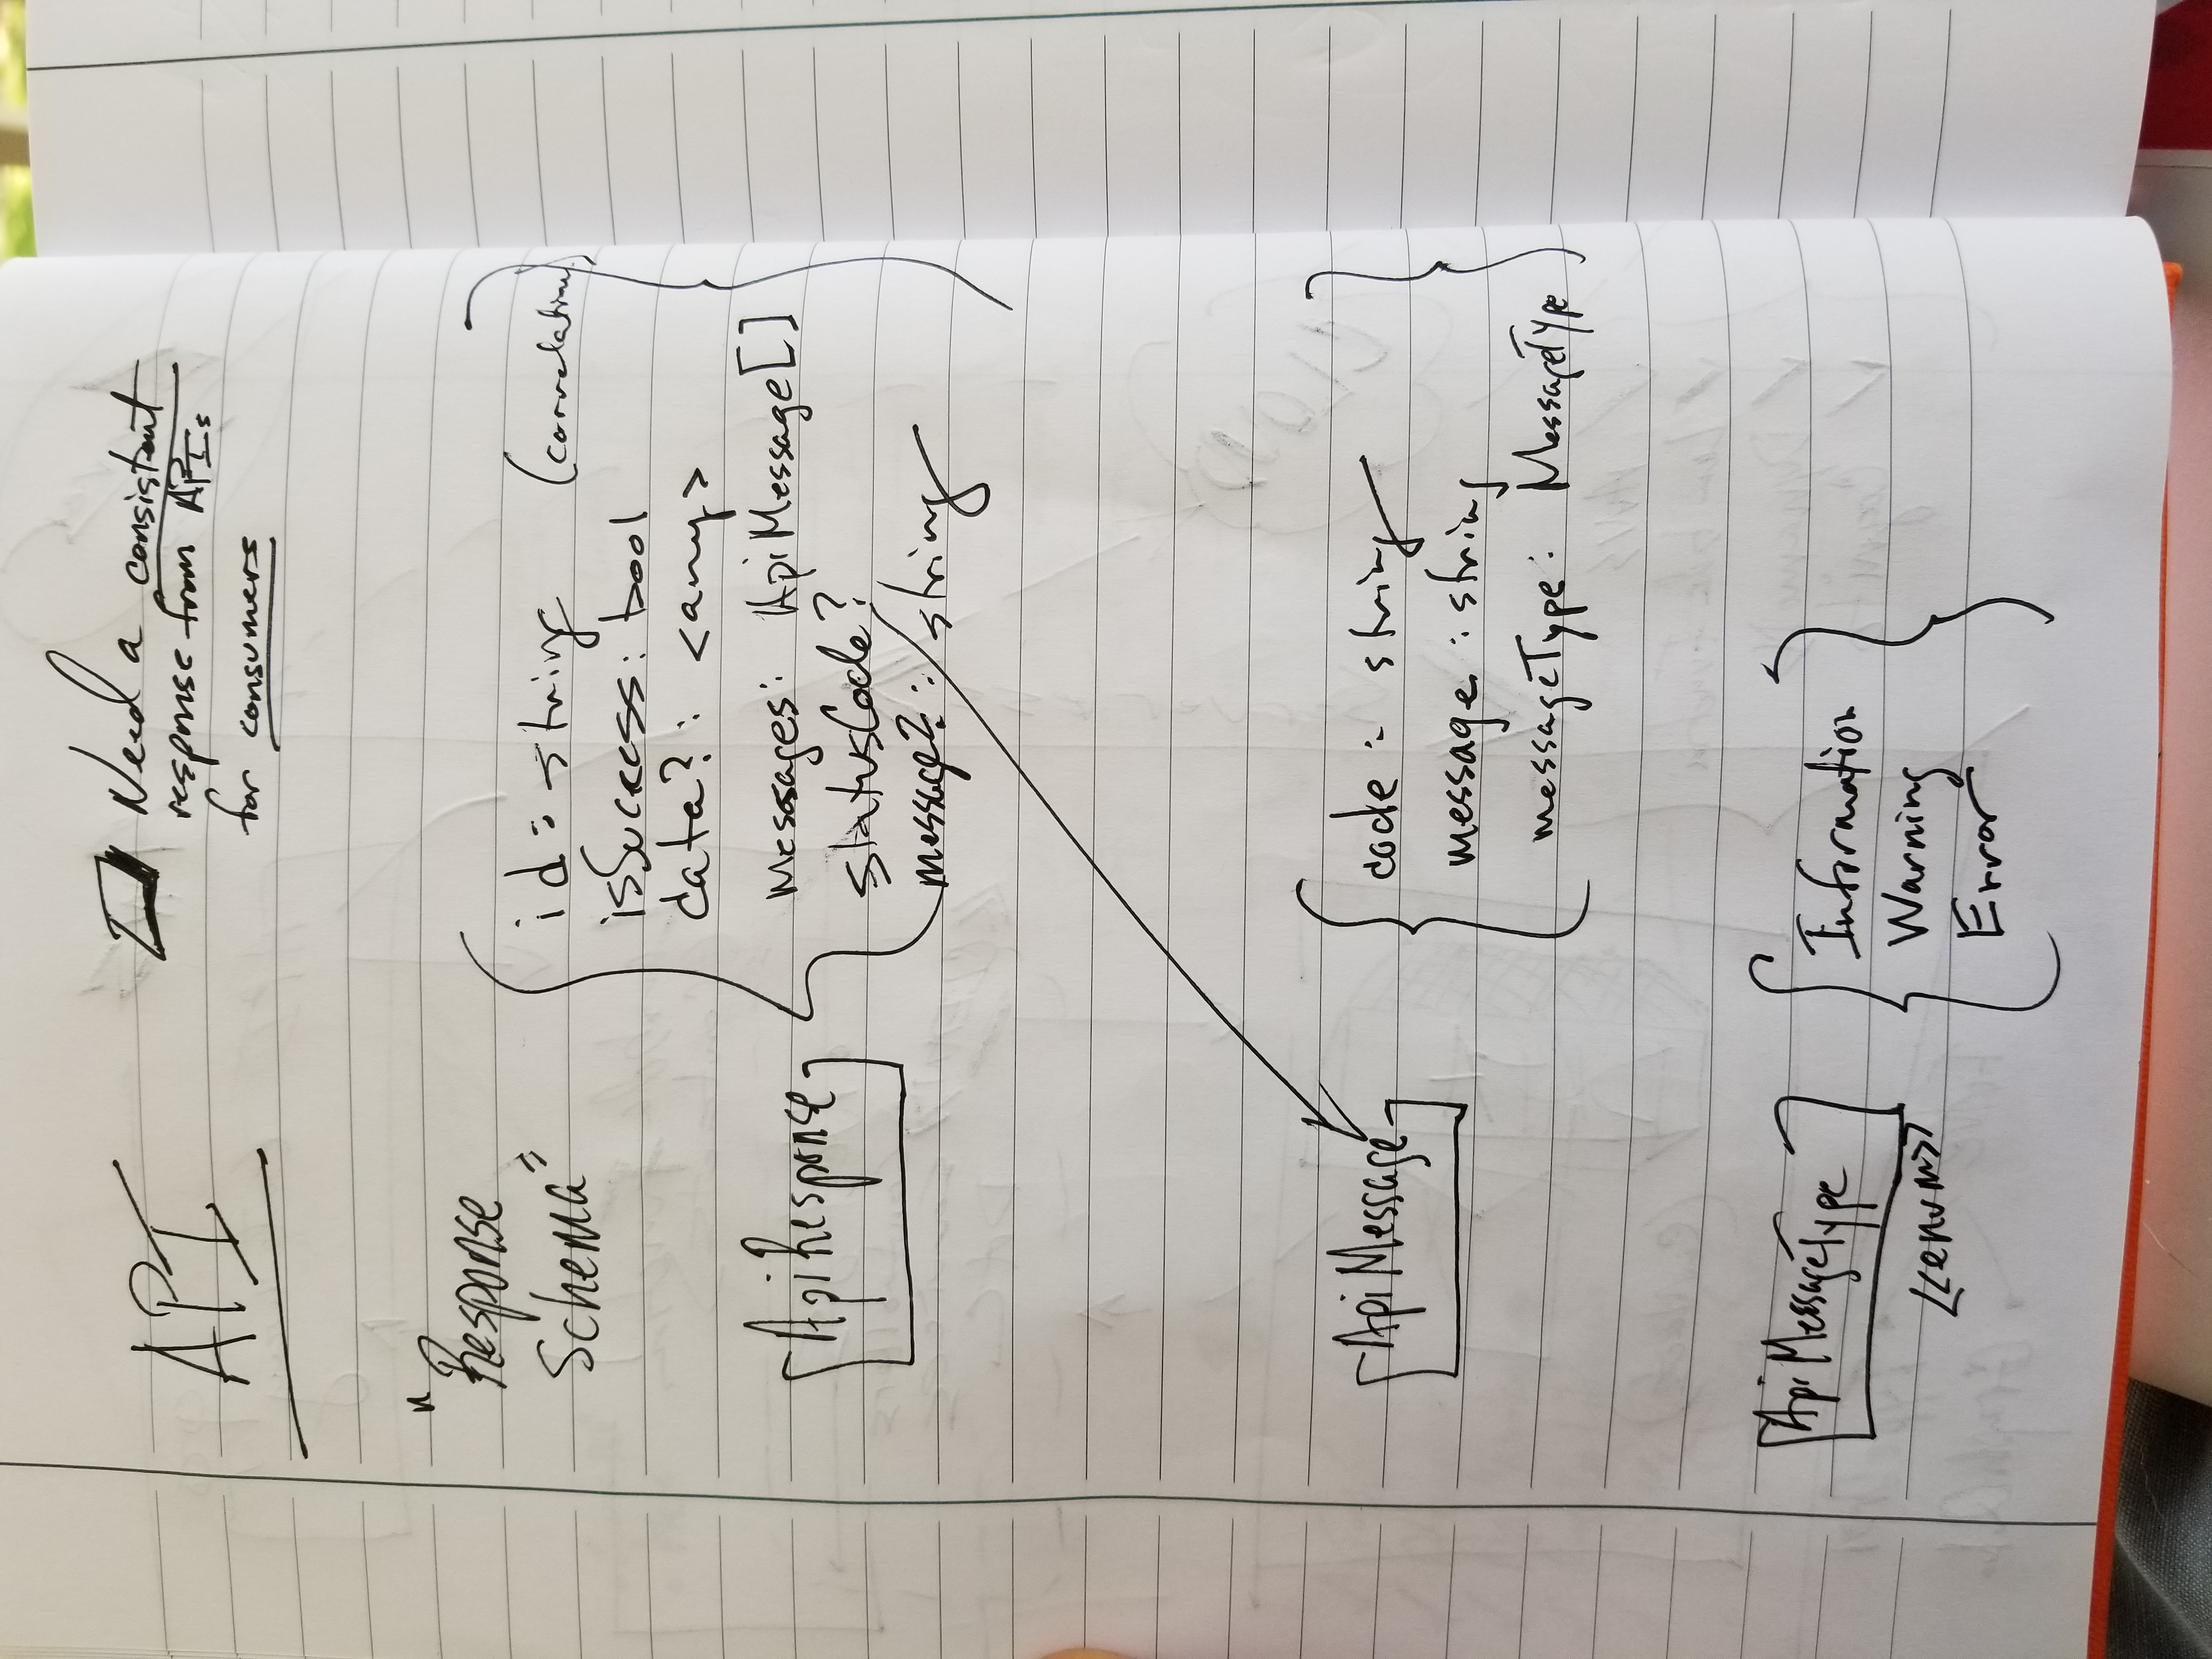 API
Need a consistent
response from APIs
for consumers
"Response
Schema"
ApiResponse
id: string (correlation)
isSuccess: bool
data?: <any>
messages: ApiMessage[]
statusCode?
message?: string
ApiMessage
code: string
message: string
messageType: MessageType
ApiMessageType
<<enum>>
Information
Warning
Error